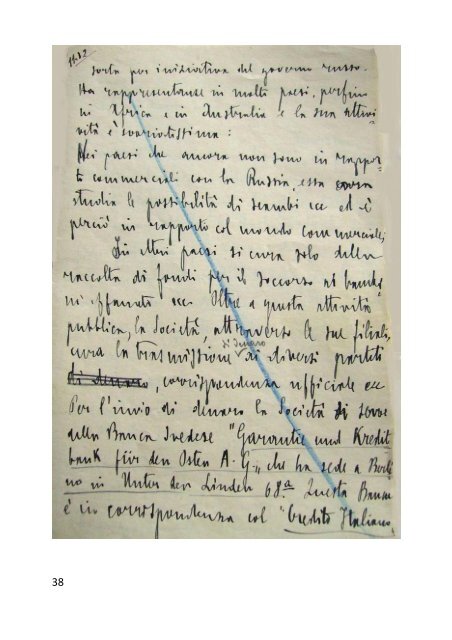 sorta per iniziativa del governo russo.
Ha rappresentanze in molti paesi, perfino
in Africa e in Australia e la sua attivi-
vità è svariatissima:
Nei paesi che ancora non sono in rappor-
ti commerciali con la Russia, essa
studia le possibilità di scambi ecc ed è
perciò in rapporto col mondo commerciale;
In altri paesi si cura solo della
raccolta di fondi per il soccorso ai bambi-
ni affamati ecc. Oltre a questa attività
pubblica, la Società, attraverso le sue filiali,
di denaro
cura la trasmissione ai diversi partiti
di denaro, corrispondenza ufficiale ecc
Per l'invio di denaro la Società si serve
della Banca Svedese "Garantie und Kredit
bank für den Osten A-G„ che ha sede a Berli
no in Unter den Linden 68.a Questa Banca
è in corrispondenza col "Credito Italiano,
38